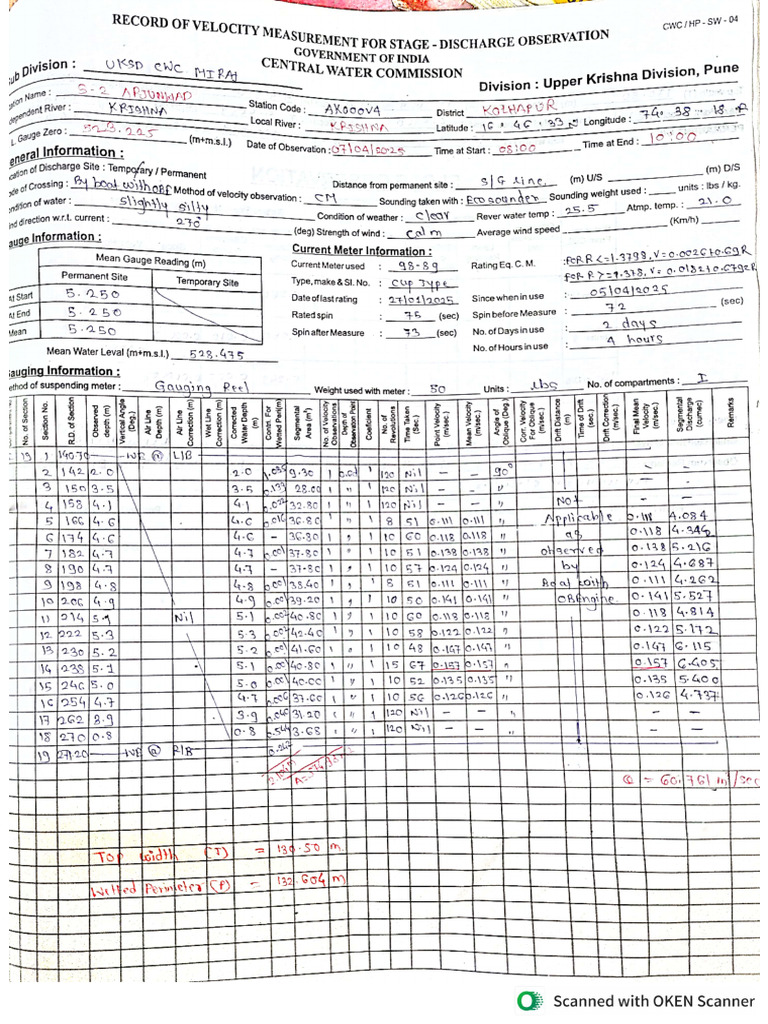 CWC / HP - SW - 04
RECORD OF VELOCITY MEASUREMENT FOR STAGE - DISCHARGE OBSERVATION
GOVERNMENT OF INDIA
CENTRAL WATER COMMISSION
ub Division : UKSD CWC MIRAJ
Division : Upper Krishna Division, Pune
ation Name : S-2 ARJUNWAD Station Code : AK000V4 District KOLHAPUR
dependent River : KRISHNA Local River : KRISHNA Latitude : 16 46 33 N Longitude : 74 - 38 - 18 E
. Gauge Zero : 523.225 (m+m.s.l.) Date of Observation : 07/04/2025 Time at Start : 08:00 Time at End : 10:00
eneral Information :
cation of Discharge Site : Temporary / Permanent Distance from permanent site : S/G line (m) U/S (m) D/S
de of Crossing : By boat with OBE Method of velocity observation : CM Sounding taken with : Ecosounder Sounding weight used : units : lbs / kg.
ndition of water : Slightly silty Condition of weather : Clear Rever water temp : 25.5 Atmp. temp. : 21.0
nd direction w.r.t. current : 270° (deg) Strength of wind : Calm Average wind speed (Km/h)
auge Information :
Mean Gauge Reading (m)
Permanent Site Temporary Site
At Start 5.250
At End 5.250
Mean 5.250
Mean Water Leval (m+m.s.l.) 528.475
Current Meter Information :
Current Meter used : 98-89 Rating Eq. C. M. : FOR R<=1.3798, V=0.0026+0.69R
FOR R>=1.378, V=0.0182+0.6792R
Type, make & Sl. No. : Cup Type Since when in use : 05/04/2025
Date of last rating : 27/01/2025 Spin before Measure : 72 (sec)
Rated spin : 75 (sec) No. of Days in use : 2 days
Spin after Measure : 73 (sec) No. of Hours in use : 4 hours
auging Information :
ethod of suspending meter : Gauging Reel Weight used with meter : 50 Units : lbs No. of compartments : I
No. of Section Section No. R.D. of Section Observed depth (m) Vertical Angle (Deg.) Air Line Depth (m) Air Line Correction (m) Wet Line Correction (m) Corrected Water Depth (m) Corrn. For Wetted Peri(m) Segmental Area (m²) No. of Velocity Observations Depth of Observation Point Coeficient No. of Revolutions Time Taken (Sec.) Point Velocity (m/sec.) Mean Velocity (m/sec.) Angle of Oblique (Deg.) Corr. Velocity For Oblique (m/sec.) Drift Distance (m) Time of Drift (sec.) Drift Correction (m/sec.) Final Mean Velocity (m/sec.) Segmental Discharge (cumec) Remarks
19 1 140.70 WE @ L/B
2 142 2.0 2.0 1.035 9.30 1 1 120 Nil - - 90° - -
3 150 3.5 3.5 0.133 28.00 1 " 1 120 Nil - - " - -
4 158 4.1 4.1 0.022 32.80 1 " 1 120 Nil - - " Not - -
5 166 4.6 4.6 0.016 36.80 1 " 1 8 51 0.111 0.111 " Applicable 0.111 4.084
6 174 4.6 4.6 - 36.80 1 " 1 10 60 0.118 0.118 " as 0.118 4.342
7 182 4.7 4.7 0.001 37.80 1 " 1 10 51 0.138 0.138 " observed 0.138 5.216
8 190 4.7 4.7 - 37.80 1 " 1 10 57 0.124 0.124 " by 0.124 4.687
9 198 4.8 4.8 0.001 38.40 1 " 1 8 51 0.111 0.111 " Boat with 0.111 4.262
10 206 4.9 4.9 0.001 39.20 1 " 1 10 50 0.141 0.141 " OBEngine. 0.141 5.527
11 214 5.1 Nil 5.1 0.002 40.80 1 " 1 10 60 0.118 0.118 " 0.118 4.814
12 222 5.3 5.3 0.002 42.40 1 " 1 10 58 0.122 0.122 " 0.122 5.172
13 230 5.2 5.2 0.001 41.60 1 " 1 10 48 0.147 0.147 " 0.147 6.115
14 238 5.1 5.1 0.001 40.80 1 " 1 15 67 0.157 0.157 " 0.157 6.405
15 246 5.0 5.0 0.001 40.00 1 " 1 10 52 0.135 0.135 " 0.135 5.400
16 254 4.7 4.7 0.006 37.60 1 " 1 10 56 0.126 0.126 " 0.126 4.737
17 262 3.9 3.9 0.040 31.20 1 " 1 120 Nil - - " - -
18 270 0.8 0.8 0.544 3.68 1 " 1 120 Nil - - " - -
19 271.20 WE @ R/B 0.242
Q = 60.761 m³/sec
Top width (T) = 130.50 m
Wetted Perimeter (P) = 132.604 m
Scanned with OKEN Scanner